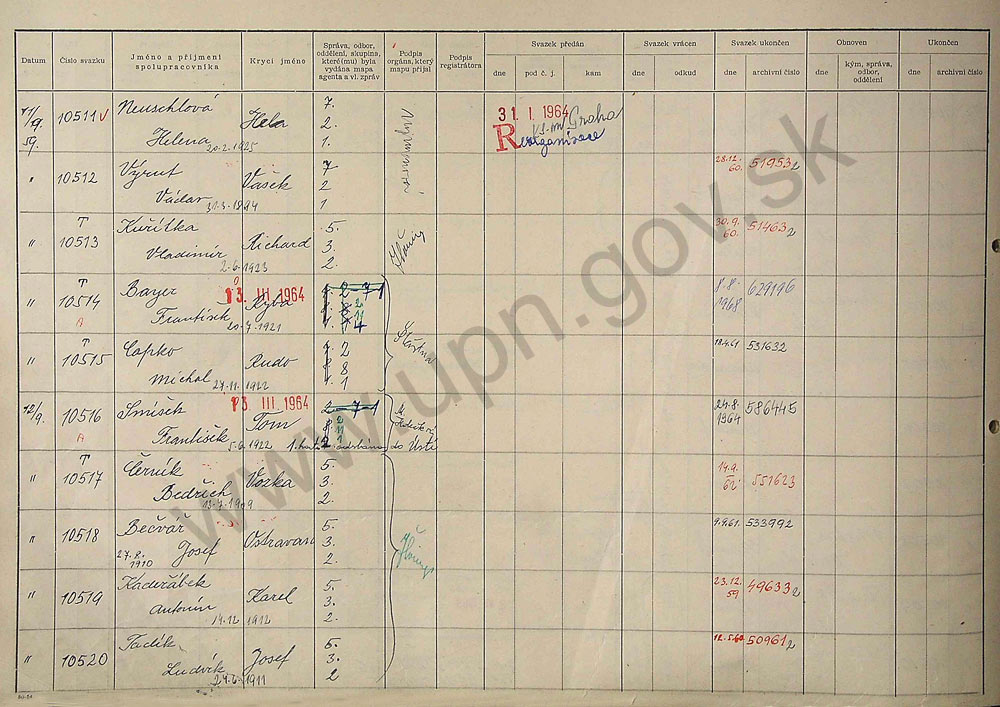 Datum
Číslo svazku
Jméno a příjmení
spolupracovníka
Krycí jméno
Správa, odbor,
oddělení, skupina,
které(mu) byla
vydána mapa
agenta a vl. zpráv
Podpis
orgána, který
mapu přijal
Podpis
registrátora
Svazek předán
dne
pod č. j.
kam
Svazek vrácen
dne
odkud
Svazek ukončen
dne
archivní číslo
Obnoven
dne
kým, správa,
odbor,
oddělení
Ukončen
dne
archivní číslo
11/9. 59.
10511
Neuschlová
Helena 20.2.1925
Hela
7.
2.
1.
31. I. 1964
Praha
Reorganisace
"
10512
Vyrut
Václav 31.3.1894
Vašek
7
2
1
28.12.
60.
51953 2
"
T
10513
Kuřítka
Vladimír
2.6.1923
Richard
5.
3.
2.
30.9.
60.
51463 2
"
T
10514
A
Bayer
František
20.7.1921
13. III. 1964
Ryba
2-7-1
2
11
4
8.8.
1968
629196
"
T
10515
Capko
Michal 27.11.1922
Rudo
2
8
1
Šťastna
18.4.61
531632
12/9.
10516
A
Smíšek
František
5.6.1922
13. III. 1964
Tom
2-7-1
2
11
1
do Ústí
24.8.
1964
586445
"
T
10517
Černík
Bedřich
13.7.1909
Vozka
5.
3.
2.
14.9.
62
551623
"
10518
Bečvář
27.8.
1910
Josef
Ostravan
5.
3.
2.
9.9.61.
533992
"
10519
Kadeřábek
Antonín
14.12.1912
Karel
5.
3.
2.
23.12.
59
49633 2
"
10520
Tadík
Ludvík
27.6.1911
Josef
5.
3.
2
12.5.60
50961 2
www.upn.gov.sk